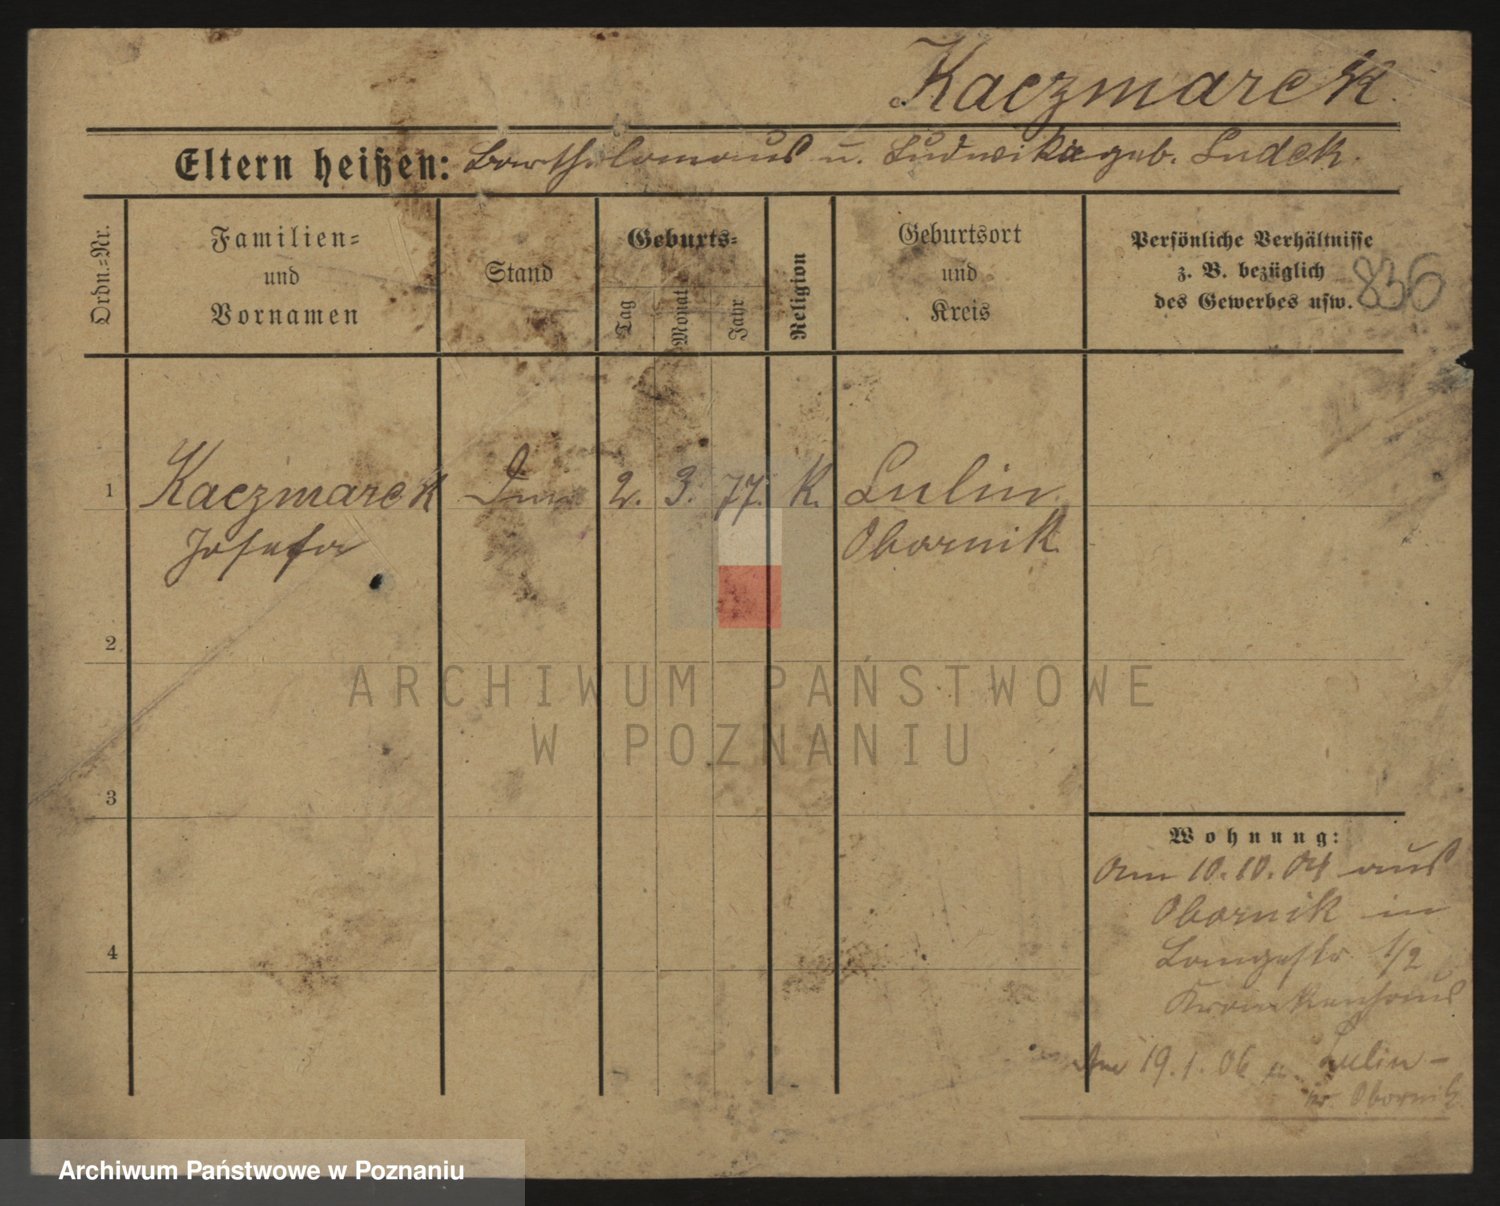 Kaczmarek.
Eltern heißen: Bartholomäus u. Ludwika geb. Ludek.
Ordn.-Nr.
Familien-
und
Vornamen
Stand
Geburts-
Tag
Monat
Jahr
Religion
Geburtsort
und
Kreis
Persönliche Verhältnisse
z. B. bezüglich
des Gewerbes usw.
836
1 Kaczmarek 2. 3. 77. K. Lulin
Josefa Obornik
2
3
4
ARCHIWUM PAŃSTWOWE
W POZNANIU
Wohnung:
Am 10.10.04 aus
Obornik in
Langestr. 1/2
Krankenhaus
19.1.06 n. Lulin-
Kr. Obornik
Archiwum Państwowe w Poznaniu